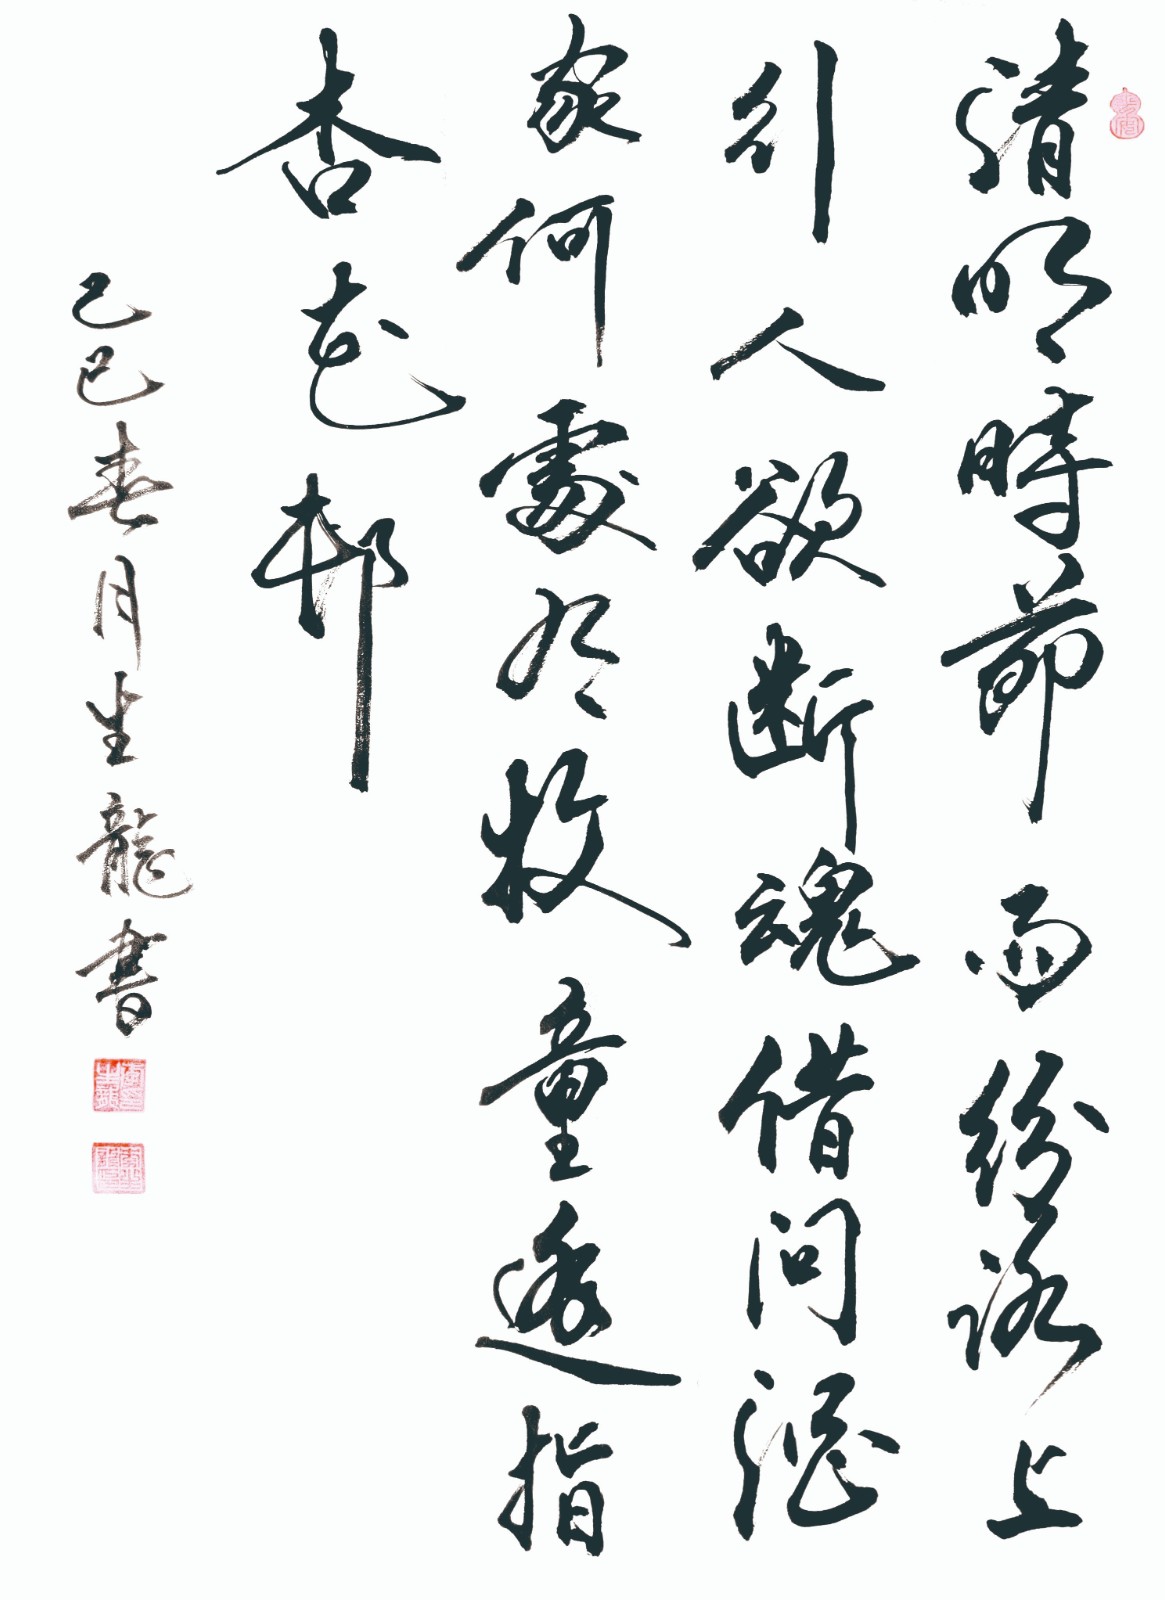 清明時節雨紛路上
行人欲断魂借问酒
家何處有牧童遥指
杏花邨
己巳春月生龍書